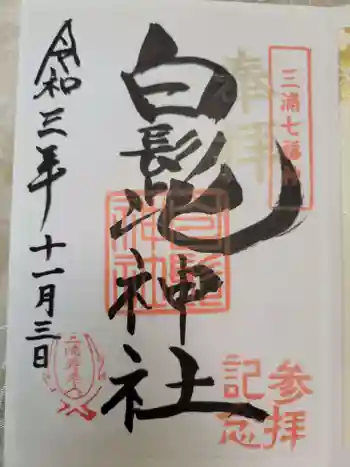 三浦七福神
奉拝
白髭神社
参拝
記念
令和三年十一月三日